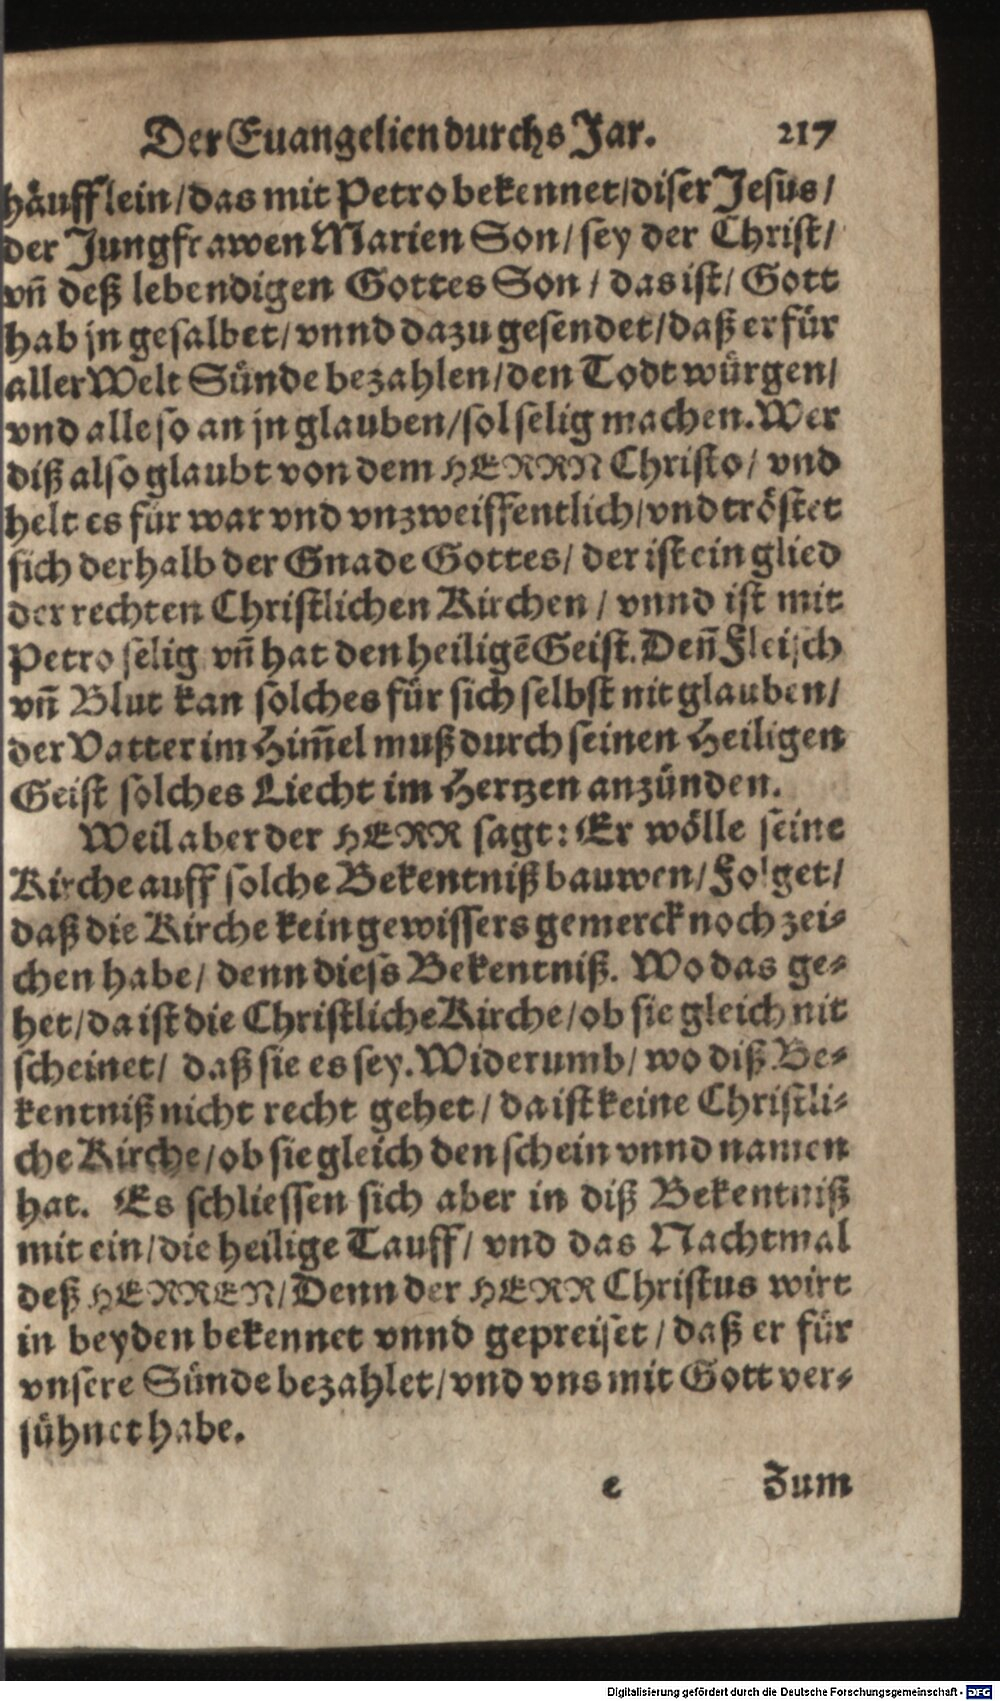 Der Euangelien durchs Jar. 217
häufflein/ das mit Petro bekennet/ diser Jesus/
der Jungfrawen Marien Son/ sey der Christ/
vn̄ deß lebendigen Gottes Son/ das ist/ Gott
hab jn gesalbet/ vnnd dazu gesendet/ daß er für
aller Welt Sünde bezahlen/ den Todt würgen/
vnd alle so an jn glauben/ sol selig machen. Wer
diß also glaubt von dem HERRN Christo/ vnd
helt es für war vnd vnzweiffentlich/ vnd tröstet
sich derhalb der Gnade Gottes/ der ist ein glied
der rechten Christlichen Kirchen/ vnnd ist mit
Petro selig vn̄ hat den heiligē Geist. Den̄ Fleisch
vn̄ Blut kan solches für sich selbst nit glauben/
der Vatter im Him̄el muß durch seinen Heiligen
Geist solches Liecht im Hertzen anzünden.
Weil aber der HERR sagt: Er wölle seine
Kirche auff solche Bekentniß bauwen/ Folget/
daß die Kirche kein gewissers gemerck noch zei-
chen habe/ denn diess Bekentniß. Wo das ge-
het/ da ist die Christliche Kirche/ ob sie gleich nit
scheinet/ daß sie es sey. Widerumb/ wo diß Be-
kentniß nicht recht gehet/ da ist keine Christli-
che Kirche/ ob sie gleich den schein vnnd namen
hat. Es schliessen sich aber in diß Bekentniß
mit ein/ die heilige Tauff/ vnd das Nachtmal
deß HERREN/ Denn der HERR Christus wirt
in beyden bekennet vnnd gepreiset/ daß er für
vnsere Sünde bezahlet/ vnd vns mit Gott ver-
sühnet habe.
e Zum
Digitalisierung gefördert durch die Deutsche Forschungsgemeinschaft - DFG